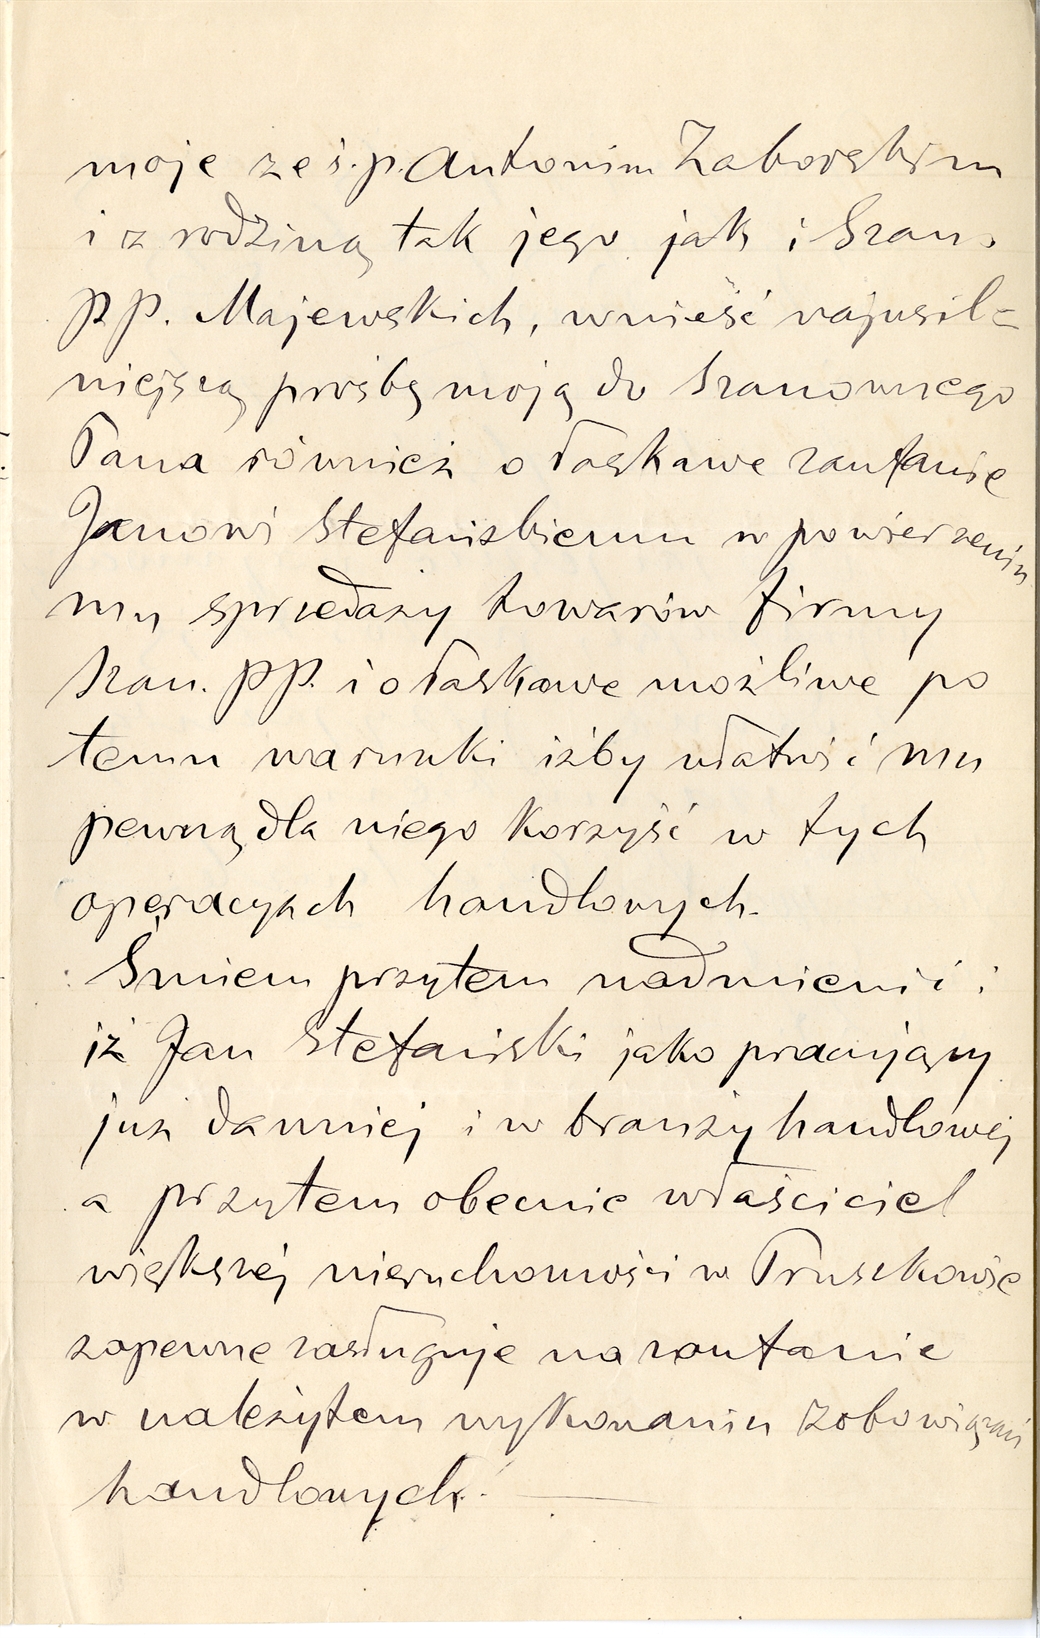 moje ze ś.p. Antonim Zaborskim
i z rodziną tak jego jak i Szan.
PP. Majewskich, wnieść najusil=
niejszą prośbę moją do Szanownego
Pana również o łaskawe zaufanie
Janowi Stefańskiemu w powierzeniu
mu sprzedaży towarów firmy
Szan. PP. i o łaskawe możliwe po
temu warunki iżby ułatwić mu
pewną dla niego korzyść w tych
operacyach handlowych.
Śmiem przytem nadmienić
iż Jan Stefański jako pracujący
już dawniej i w branży handlowej
a przytem obecnie właściciel
większej nieruchomości w Pruszkowie
zapewne zasługuje na zaufanie
w należytem wykonaniu zobowiązań
handlowych.